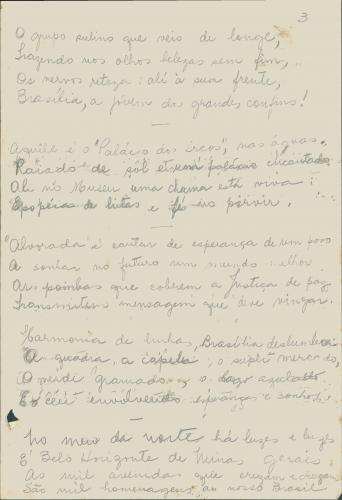 3
O grupo sulino que veio de longe,
Trazendo nos olhos belezas sem fim,
Os nervos reteza: ali à sua frente,
Brasília, a jovem dos grandes confins!
Aquele é o "Palácio dos Arcos", nas águas
Raiado de sol encantado
Ali no Museu uma chama está viva:
Epopéias de lutas e fé no porvir.
"Alvorada" é cantar de esperança de um povo
A sonhar no futuro um mundo melhor
As pombas que cobrem a Justiça de paz
Transmitem mensagem que deve vingar.
Harmonia de linhas, Brasília deslumbra:
A quadra, a capela, o super mercado,
O verde gramado, e o lago azulado
E o céu envolvendo esperanças e sonhos
No meio da noite há luzes e luzes
É Belo Horizonte de Minas gerais
As mil avenidas que cruzam
São mil homenagens, ao nosso Brasil